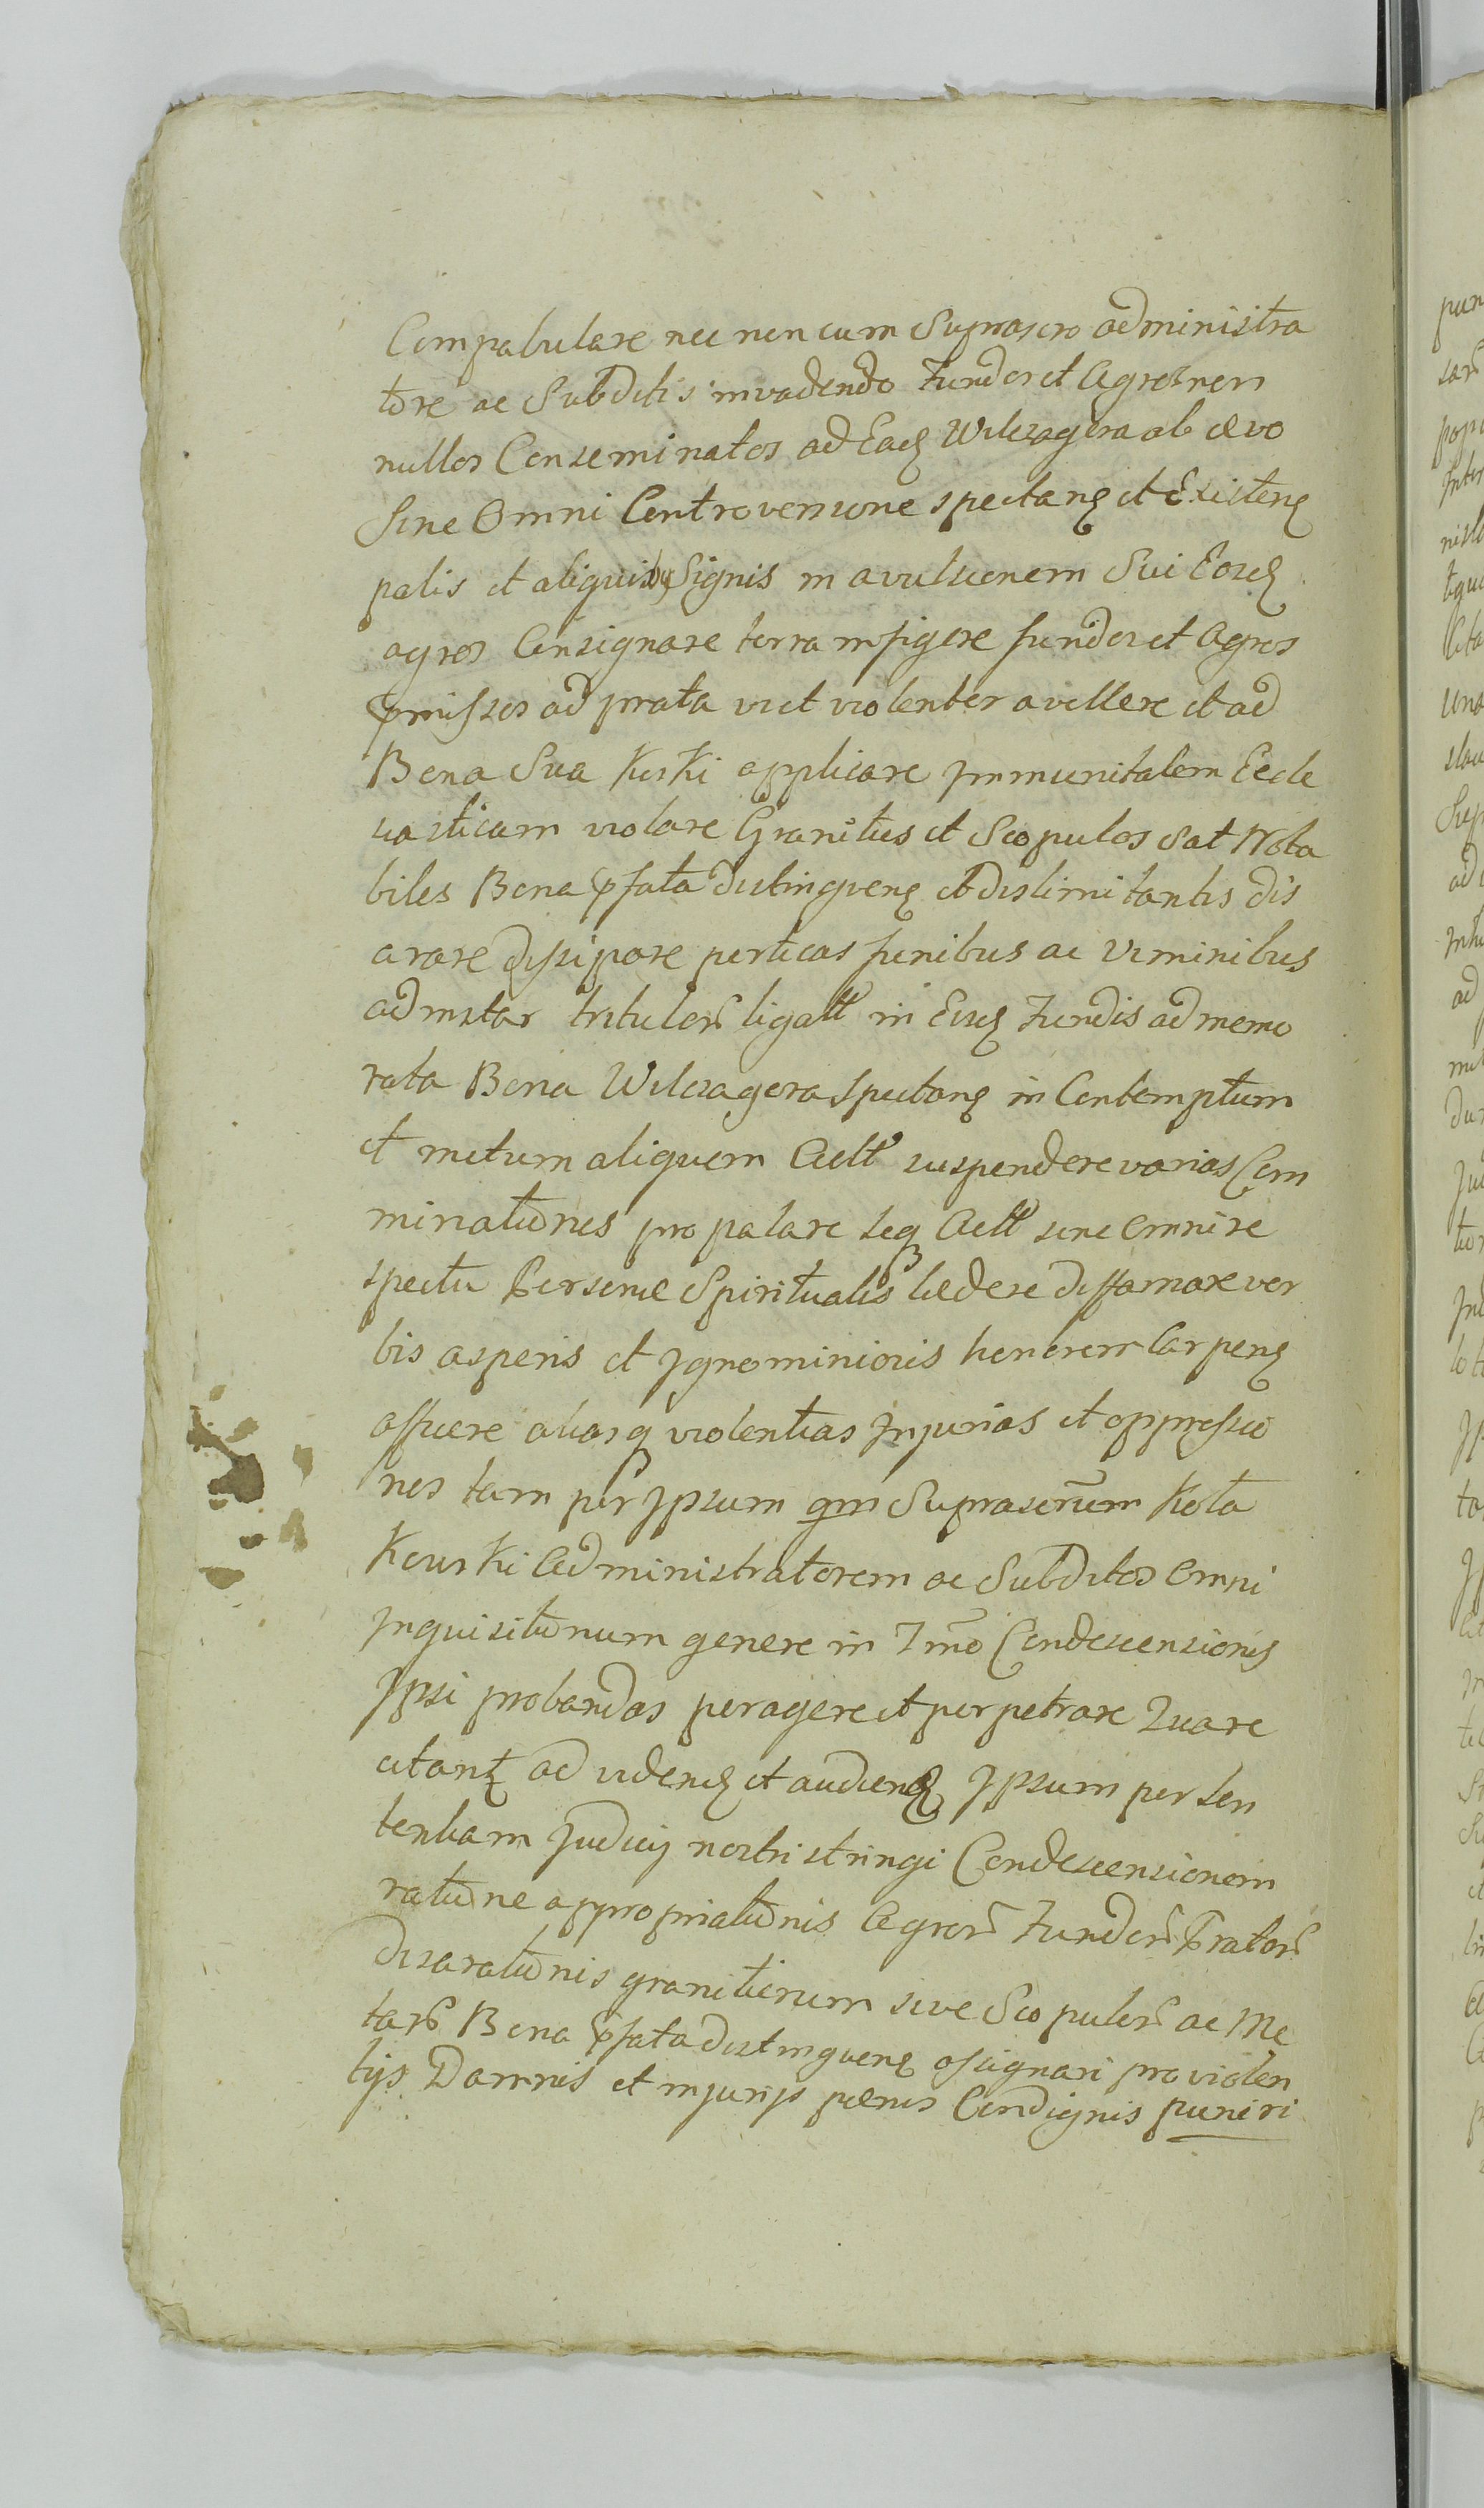 Compabulare nec non cum Suprascro administra
tore ac Subditis invadendo Fundos et Agros non
nullos Conseminatos ad Ead Wilczagora ab ævo
Sine Omni Controversione spectan et Existen
palis et aliquibus Signis in avulsionem Sui Eosd
agros Consignare terra infigere fundos et Agros
pmissos ad prata vi et violenter avellere et ad
Bona Sua Koski applicare Immunitatem Eccle
siasticam violare Granities et Scopulos Sat Nota
biles Bona pfata distinguen et dislimitantes dis
arare dissipare perticas funibus ac Viminibus
ad instar tituler ligatt in Eisd Fundis ad memo
rata Bona Wilczagora Spectan in Contemptum
et metum aliquem Actt suspendere varias Com
minationes propalare seq Actt sine omni re
spectu Personæ Spiritualis lædere diffamare ver
bis asperis et Ignominiosis honorem Carpen
afficere aliasq violentias Injurias et oppressio
nes tam per Ipsum qm Suprascrum Kota
Kowski Administratorem ac Subditos Omni
Inquisitionum genere in Tmo Condescensionis
Ipsi probandas peragere et perpetrare Quare
citant ad viden et audien Ipsum per Sen
tentiam Judicij nostri stringi Condescensionem
ratione appropriationis Agror Fundor Prator
disarationis granitierum sive Scopulor ac Me
tar Bona pfata distinguen assignari pro violen
tijs Damnis et injurijs pænis Condignis puniri
pun